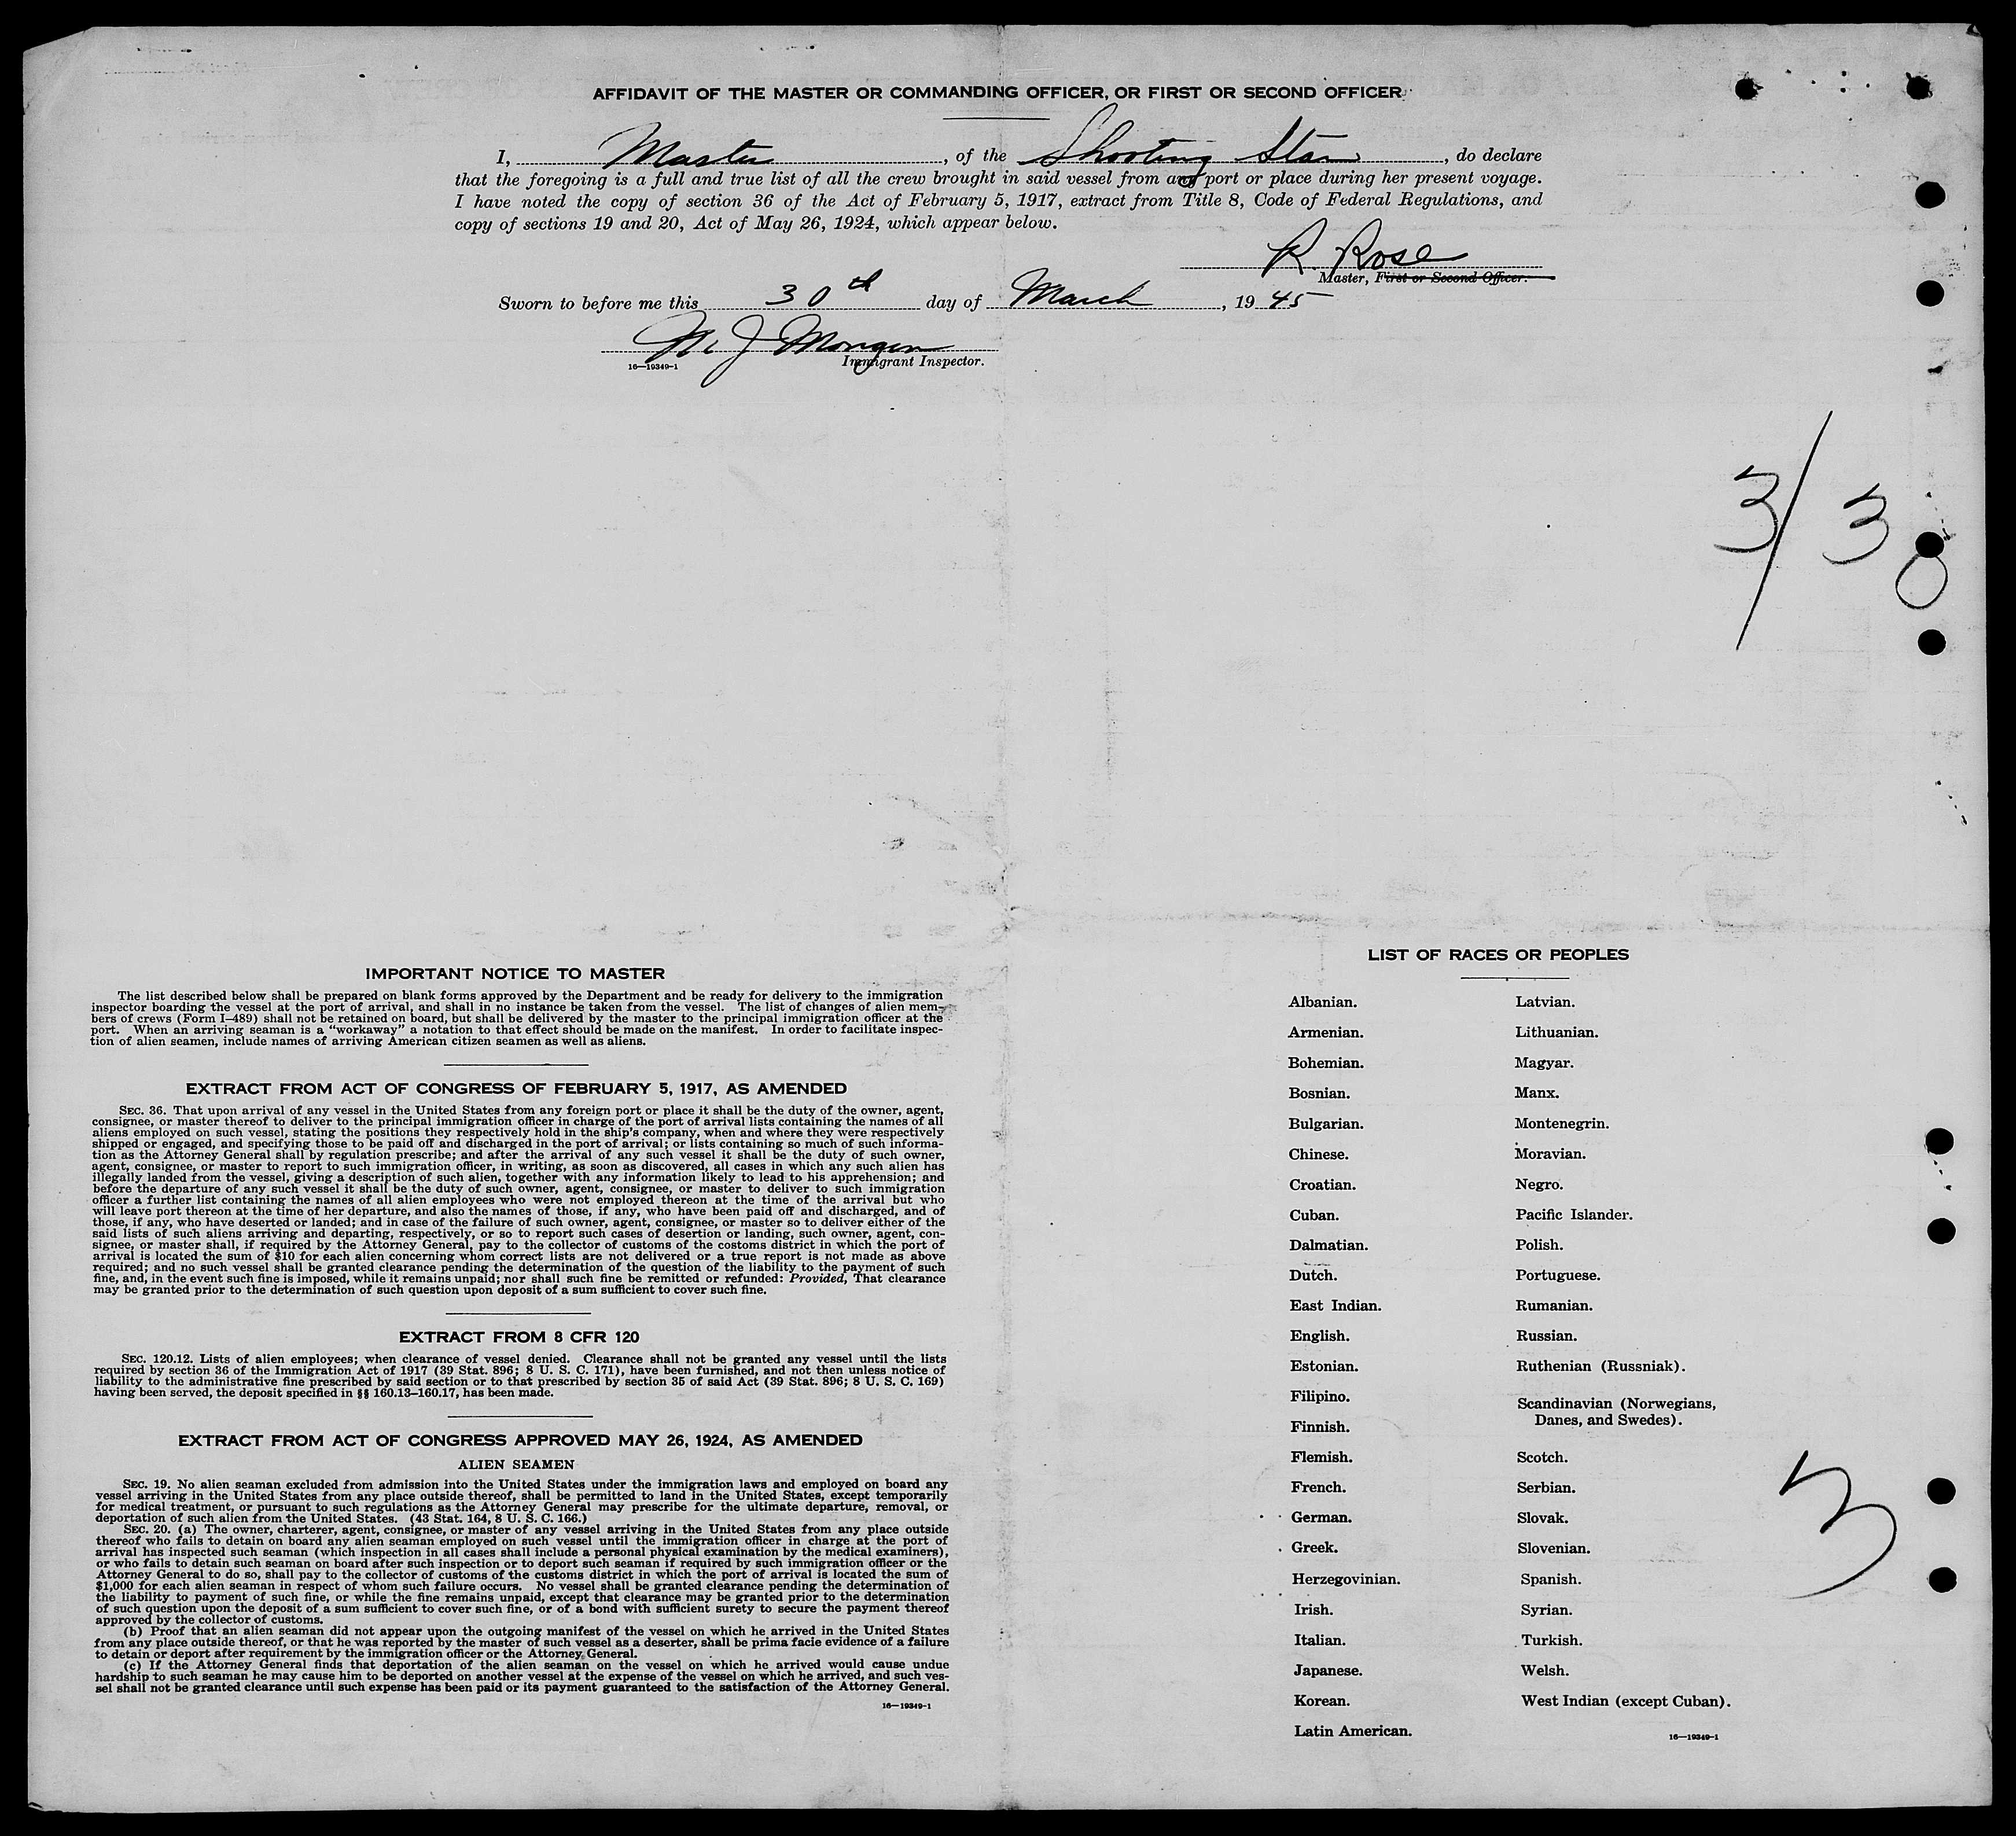 AFFIDAVIT OF THE MASTER OR COMMANDING OFFICER, OR FIRST OR SECOND OFFICER
I, Master, of the Shooting Star, do declare
that the foregoing is a full and true list of all the crew brought in said vessel from any port or place during her present voyage.
I have noted the copy of section 36 of the Act of February 5, 1917, extract from Title 8, Code of Federal Regulations, and
copy of sections 19 and 20, Act of May 26, 1924, which appear below.
R. Rose
Master, First or Second Officer.
Sworn to before me this 30th day of March, 1945
J
Immigrant Inspector.
16—19349-1
3/30
IMPORTANT NOTICE TO MASTER
The list described below shall be prepared on blank forms approved by the Department and be ready for delivery to the immigration
inspector boarding the vessel at the port of arrival, and shall in no instance be taken from the vessel. The list of changes of alien mem-
bers of crews (Form I-489) shall not be retained on board, but shall be delivered by the master to the principal immigration officer at the
port. When an arriving seaman is a "workaway" a notation to that effect should be made on the manifest. In order to facilitate inspec-
tion of alien seamen, include names of arriving American citizen seamen as well as aliens.
EXTRACT FROM ACT OF CONGRESS OF FEBRUARY 5, 1917, AS AMENDED
SEC. 36. That upon arrival of any vessel in the United States from any foreign port or place it shall be the duty of the owner, agent,
consignee, or master thereof to deliver to the principal immigration officer in charge of the port of arrival lists containing the names of all
aliens employed on such vessel, stating the positions they respectively hold in the ship's company, when and where they were respectively
shipped or engaged, and specifying those to be paid off and discharged in the port of arrival; or lists containing so much of such informa-
tion as the Attorney General shall by regulation prescribe; and after the arrival of any such vessel it shall be the duty of such owner,
agent, consignee, or master to report to such immigration officer, in writing, as soon as discovered, all cases in which any such alien has
illegally landed from the vessel, giving a description of such alien, together with any information likely to lead to his apprehension; and
before the departure of any such vessel it shall be the duty of such owner, agent, consignee, or master to deliver to such immigration
officer a further list containing the names of all alien employees who were not employed thereon at the time of the arrival but who
will leave port thereon at the time of her departure, and also the names of those, if any, who have been paid off and discharged, and of
those, if any, who have deserted or landed; and in case of the failure of such owner, agent, consignee, or master so to deliver either of the
said lists of such aliens arriving and departing, respectively, or so to report such cases of desertion or landing, such owner, agent, con-
signee, or master shall, if required by the Attorney General, pay to the collector of customs of the costoms district in which the port of
arrival is located the sum of $10 for each alien concerning whom correct lists are not delivered or a true report is not made as above
required; and no such vessel shall be granted clearance pending the determination of the question of the liability to the payment of such
fine, and, in the event such fine is imposed, while it remains unpaid; nor shall such fine be remitted or refunded: Provided, That clearance
may be granted prior to the determination of such question upon deposit of a sum sufficient to cover such fine.
EXTRACT FROM 8 CFR 120
SEC. 120.12. Lists of alien employees; when clearance of vessel denied. Clearance shall not be granted any vessel until the lists
required by section 36 of the Immigration Act of 1917 (39 Stat. 896; 8 U. S. C. 171), have been furnished, and not then unless notice of
liability to the administrative fine prescribed by said section or to that prescribed by section 35 of said Act (39 Stat. 896; 8 U. S. C. 169)
having been served, the deposit specified in §§ 160.13-160.17, has been made.
EXTRACT FROM ACT OF CONGRESS APPROVED MAY 26, 1924, AS AMENDED
ALIEN SEAMEN
SEC. 19. No alien seaman excluded from admission into the United States under the immigration laws and employed on board any
vessel arriving in the United States from any place outside thereof, shall be permitted to land in the United States, except temporarily
for medical treatment, or pursuant to such regulations as the Attorney General may prescribe for the ultimate departure, removal, or
deportation of such alien from the United States. (43 Stat. 164, 8 U. S. C. 166.)
SEC. 20. (a) The owner, charterer, agent, consignee, or master of any vessel arriving in the United States from any place outside
thereof who fails to detain on board any alien seaman employed on such vessel until the immigration officer in charge at the port of
arrival has inspected such seaman (which inspection in all cases shall include a personal physical examination by the medical examiners),
or who fails to detain such seaman on board after such inspection or to deport such seaman if required by such immigration officer or the
Attorney General to do so, shall pay to the collector of customs of the customs district in which the port of arrival is located the sum of
$1,000 for each alien seaman in respect of whom such failure occurs. No vessel shall be granted clearance pending the determination of
the liability to payment of such fine, or while the fine remains unpaid, except that clearance may be granted prior to the determination
of such question upon the deposit of a sum sufficient to cover such fine, or of a bond with sufficient surety to secure the payment thereof
approved by the collector of customs.
(b) Proof that an alien seaman did not appear upon the outgoing manifest of the vessel on which he arrived in the United States
from any place outside thereof, or that he was reported by the master of such vessel as a deserter, shall be prima facie evidence of a failure
to detain or deport after requirement by the immigration officer or the Attorney General.
(c) If the Attorney General finds that deportation of the alien seaman on the vessel on which he arrived would cause undue
hardship to such seaman he may cause him to be deported on another vessel at the expense of the vessel on which he arrived, and such ves-
sel shall not be granted clearance until such expense has been paid or its payment guaranteed to the satisfaction of the Attorney General.
16—19349-1
LIST OF RACES OR PEOPLES
Albanian.
Armenian.
Bohemian.
Bosnian.
Bulgarian.
Chinese.
Croatian.
Cuban.
Dalmatian.
Dutch.
East Indian.
English.
Estonian.
Filipino.
Finnish.
Flemish.
French.
German.
Greek.
Herzegovinian.
Irish.
Italian.
Japanese.
Korean.
Latin American.
Latvian.
Lithuanian.
Magyar.
Manx.
Montenegrin.
Moravian.
Negro.
Pacific Islander.
Polish.
Portuguese.
Rumanian.
Russian.
Ruthenian (Russniak).
Scandinavian (Norwegians,
Danes, and Swedes).
Scotch.
Serbian.
Slovak.
Slovenian.
Spanish.
Syrian.
Turkish.
Welsh.
West Indian (except Cuban).
16—19349-1
3